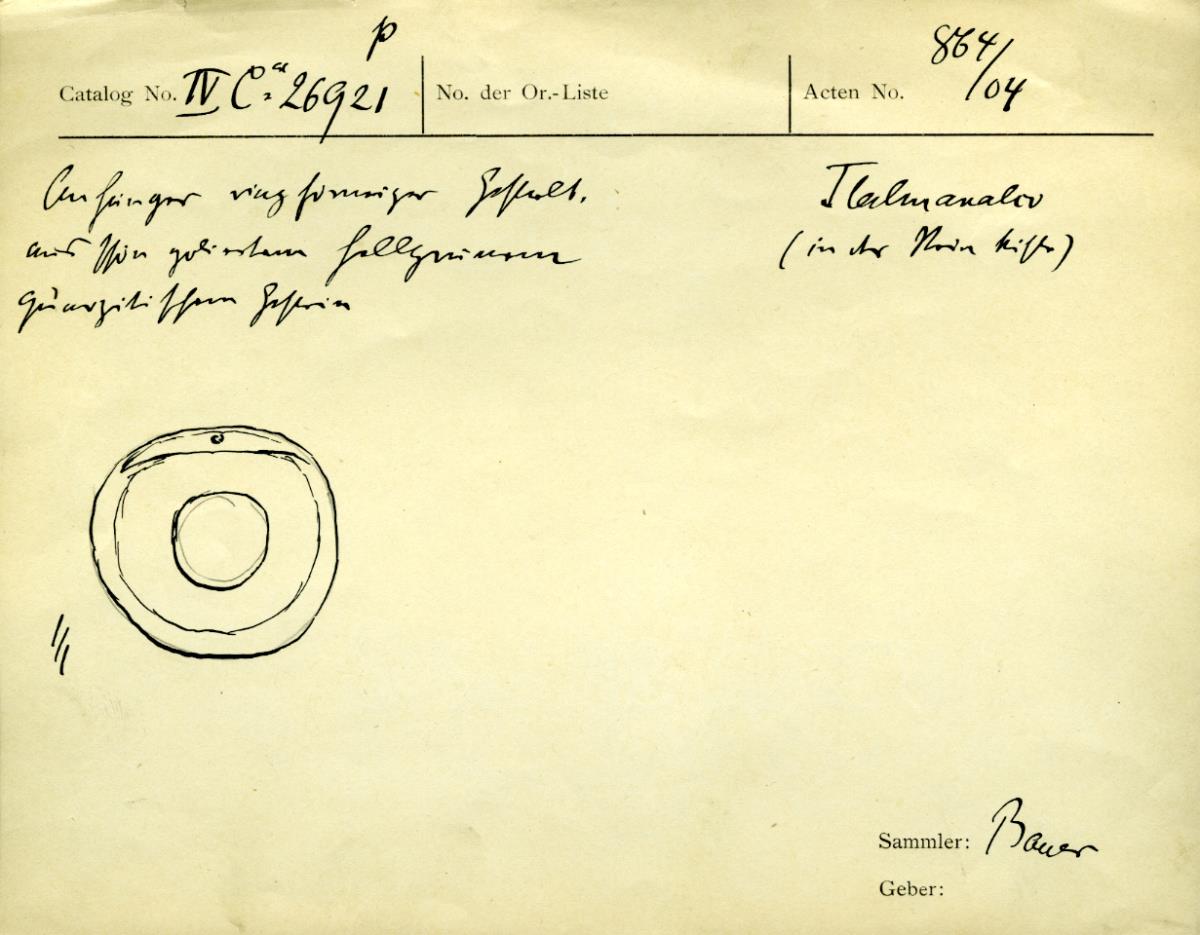 p
Catalog No. IV Ca 26921
No. der Or.-Liste
Acten No. 864/04
Anhänger ringförmiger Gestalt,
aus schön poliertem hellgrünem
quarzitischem Gestein
Tlalmanalco
(in der Steinkiste)
1/1
Sammler: Bauer
Geber: